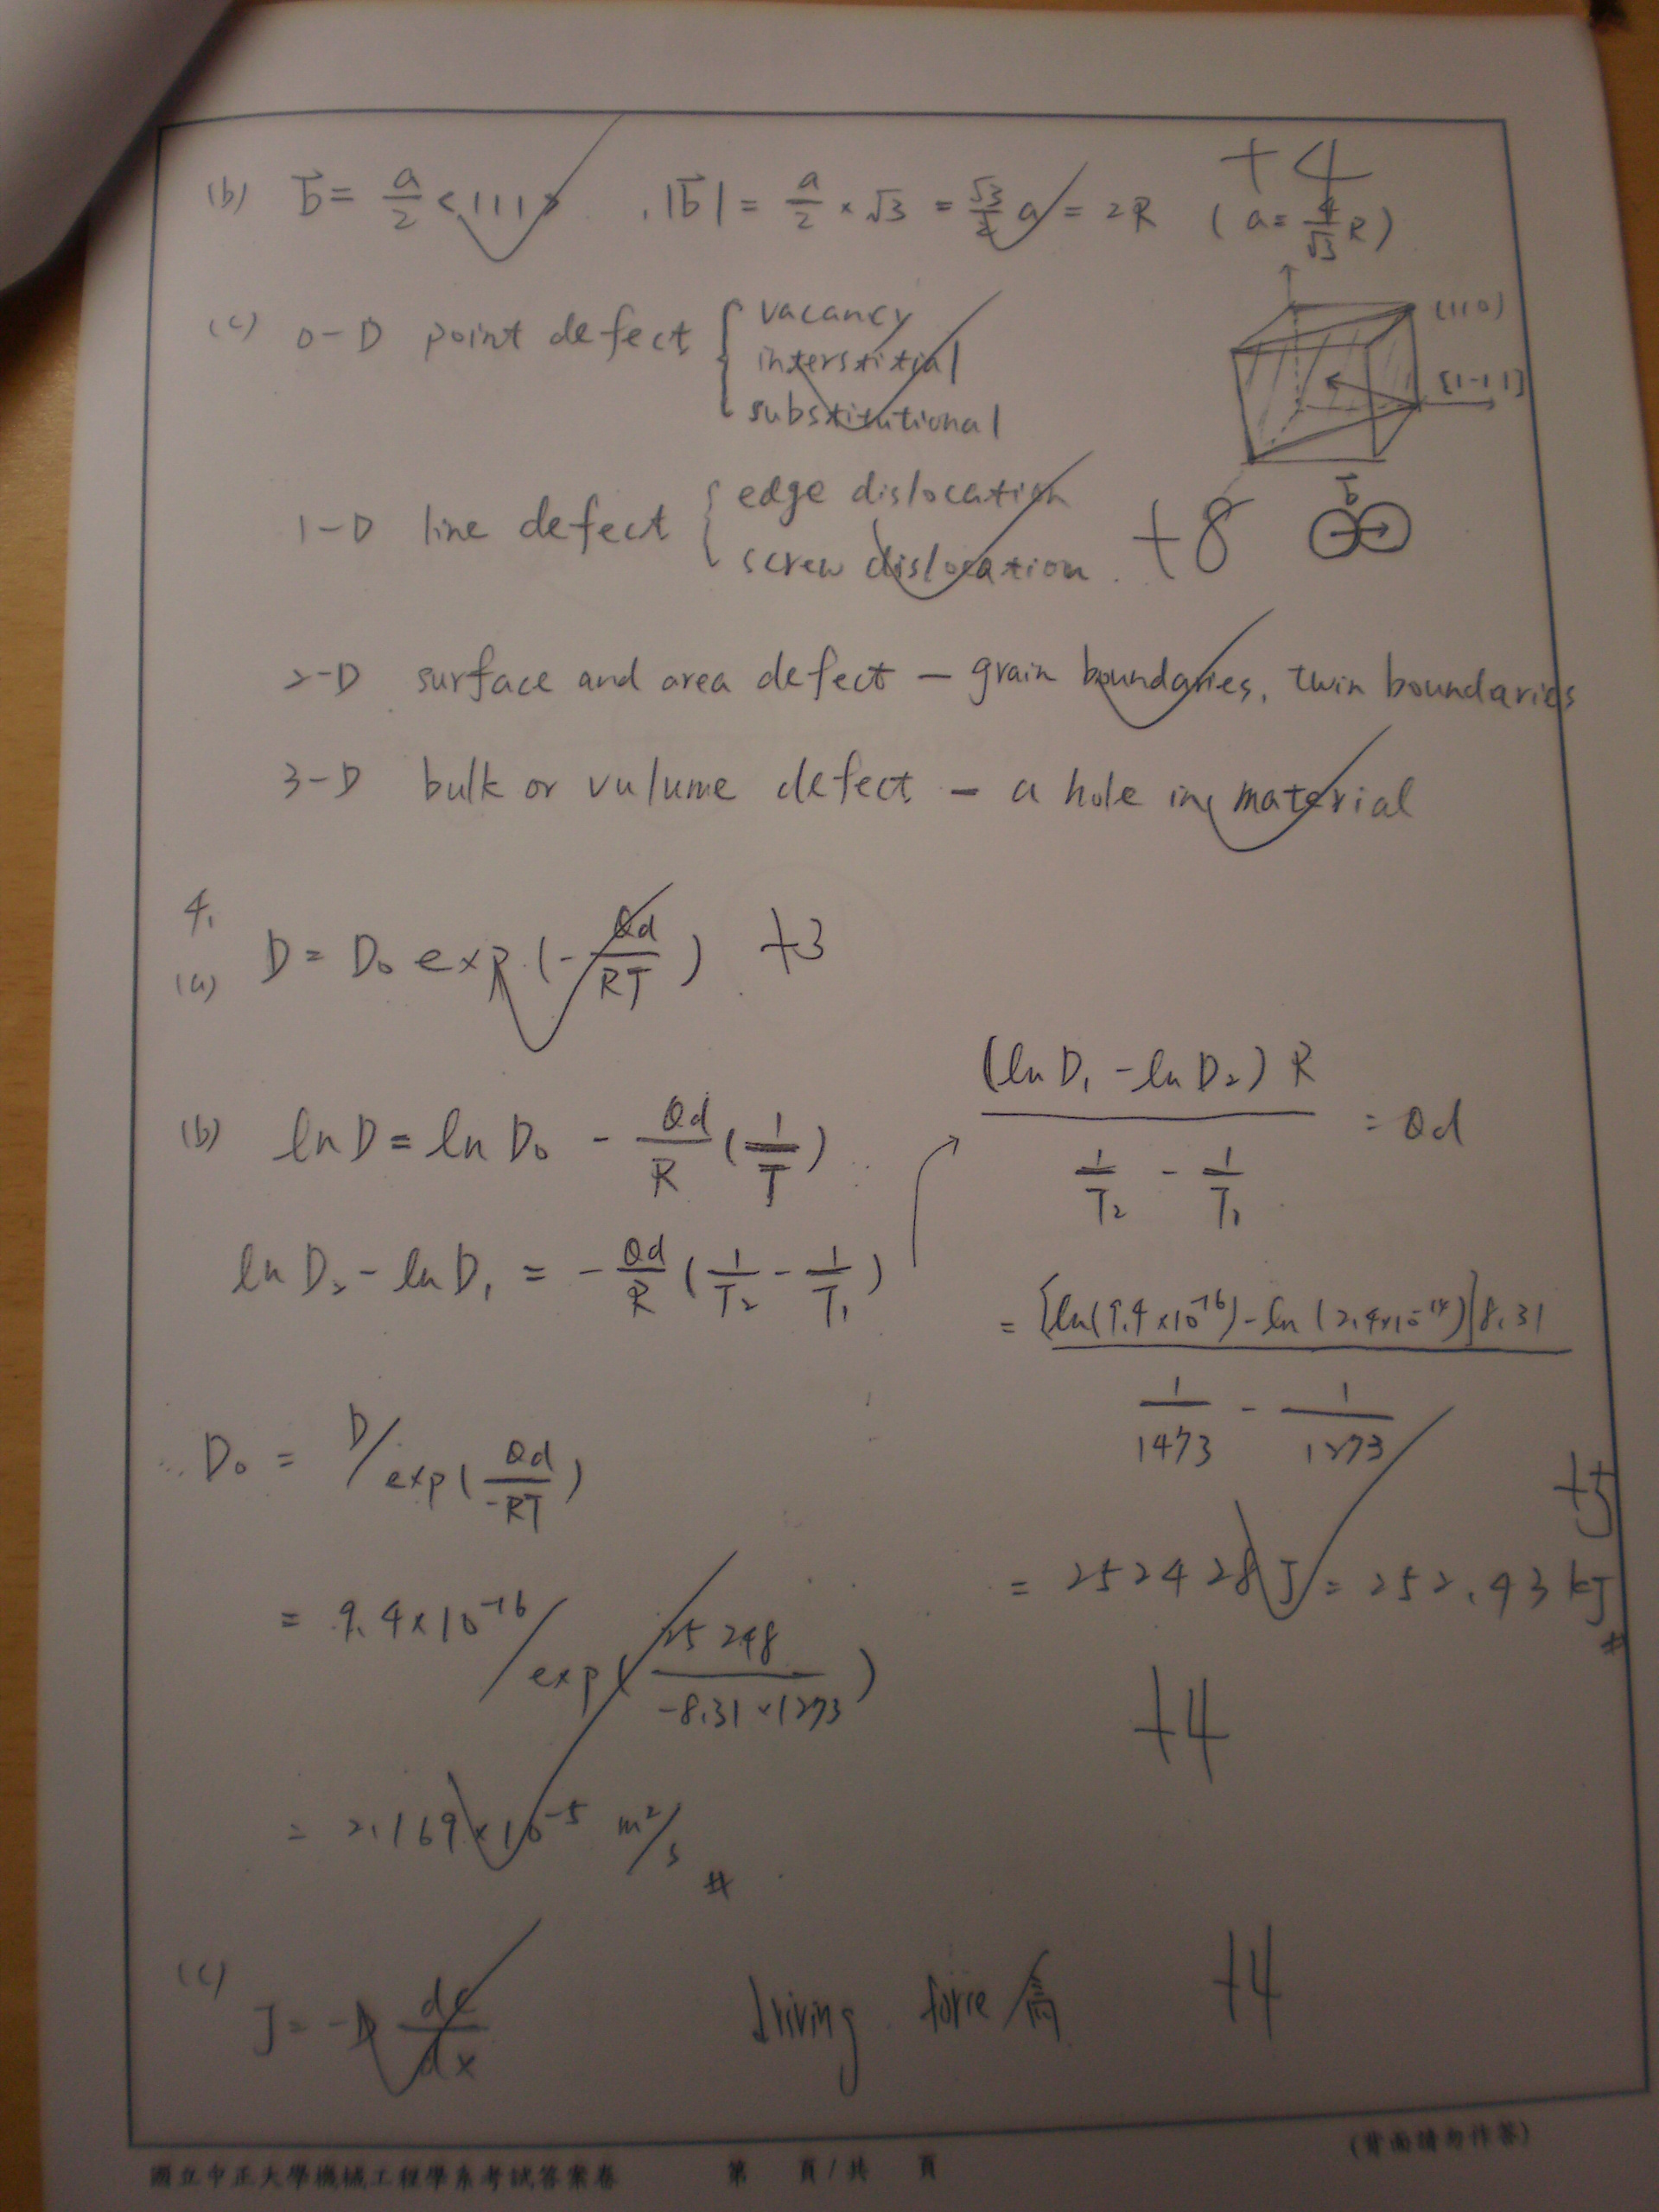 (b) b⃗ = a/2 <111> , |b⃗| = a/2 × √3 = √3/2 a = 2R ( a = 4/√3 R ) +4
(c) 0-D point defect { vacancy
interstitial
substitutional
(110)
[1-11]
b⃗
1-D line defect { edge dislocation
screw dislocation . +8
2-D surface and area defect — grain boundaries, twin boundaries
3-D bulk or vulume defect — a hole in material
4.
(a) D = D₀ exp (- Qd/RT) +3
(b) ln D = ln D₀ - Qd/R (1/T)
ln D₂ - ln D₁ = - Qd/R (1/T₂ - 1/T₁)
(ln D₁ - ln D₂) R / (1/T₂ - 1/T₁) = Qd
= [ln(9.4×10⁻¹⁶) - ln(2.4×10⁻¹⁴)] 8.31 / (1/1473 - 1/1273)
= 252428 J = 252.43 kJ # +5
D₀ = D / exp( Qd/-RT )
= 9.4×10⁻¹⁶ / exp( 25248 / -8.31×1273 )
= 2.169×10⁻⁵ m²/s # +4
(c) J = -D dc/dx driving force 高 +4
(背面請勿作答)
國立中正大學機械工程學系考試答案卷 第 頁/共 頁